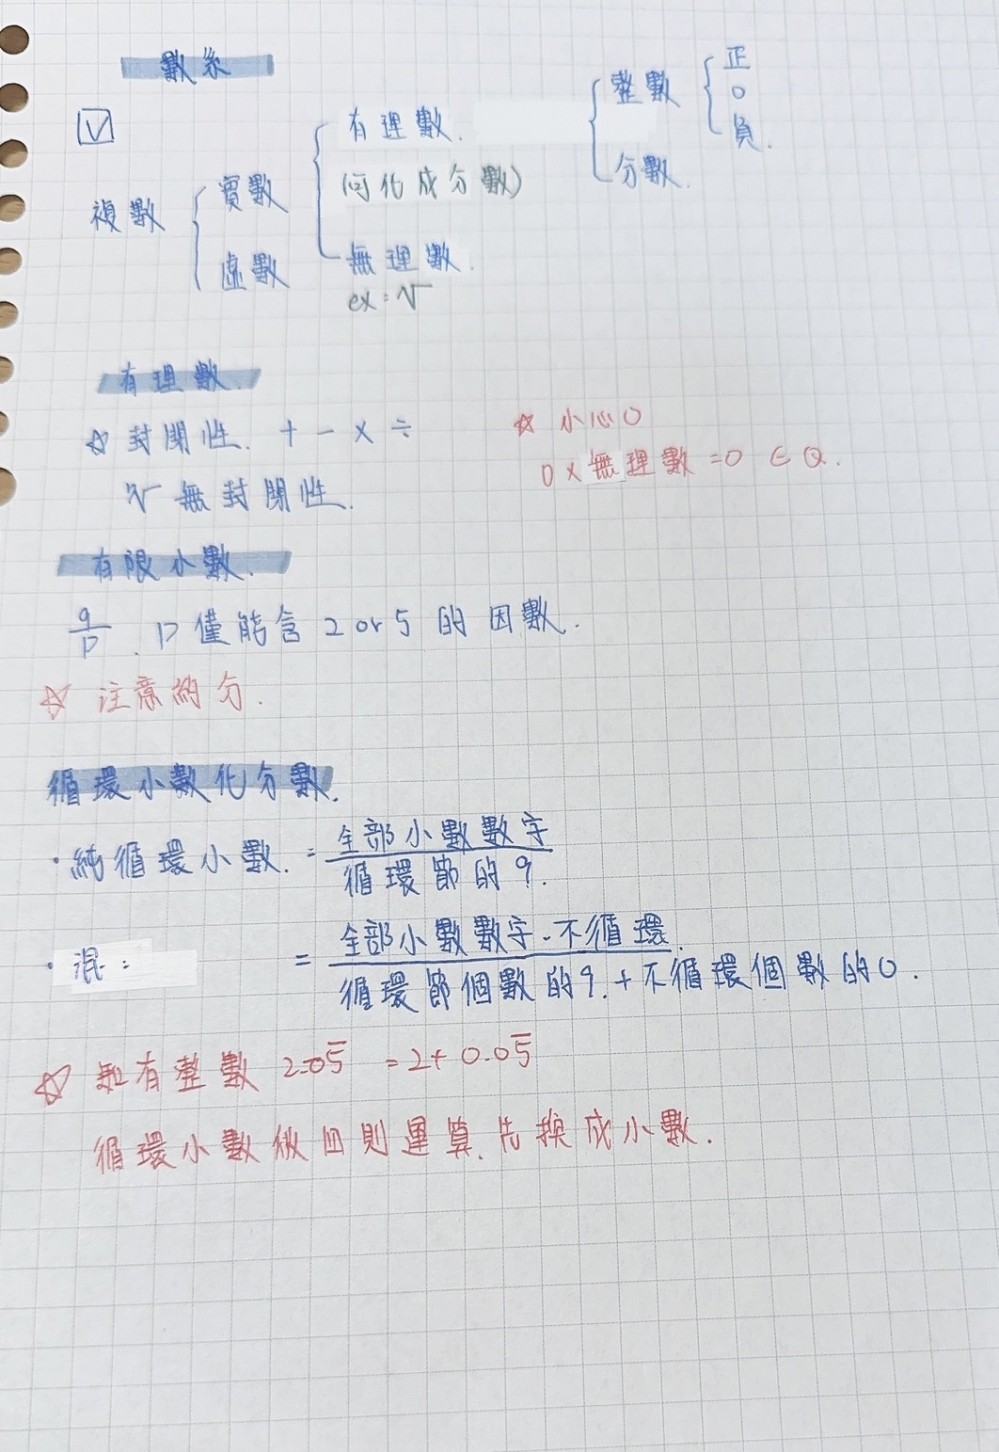 數系
複數
實數
虛數
有理數.
(可化成分數)
無理數.
ex:√
整數
分數.
正
0
負.
有理數.
☆ 封閉性. + - × ÷
√ 無封閉性.
☆ 小心0
0×無理數=0 ∈ Q.
有限小數.
q/p . p僅能含2 or 5的因數.
☆ 注意約分.
循環小數化分數.
·純循環小數. = 全部小數數字/循環節的9.
·混: = 全部小數數字-不循環./循環節個數的9.+不循環個數的0.
☆ 如有整數 2.05̅ =2+0.05̅
循環小數做四則運算.先換成小數.